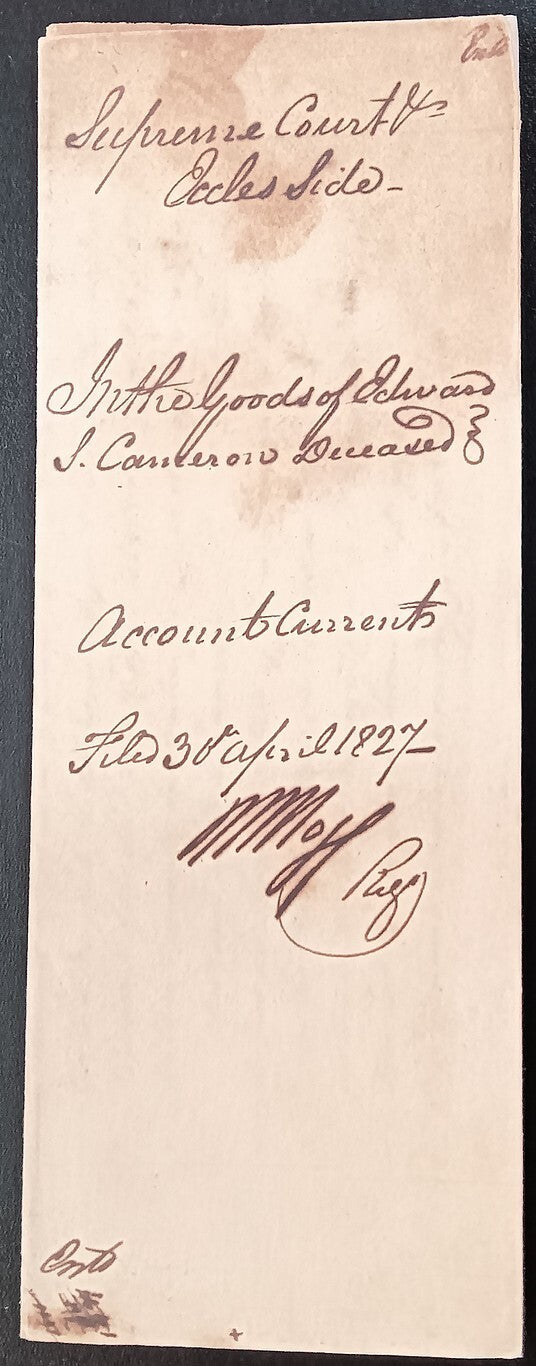 Supreme Court &c
Eccles Side -
In the Goods of Edward
S. Cameron Deceased
Account Current
Filed 30 april 1827
Regr
Entd